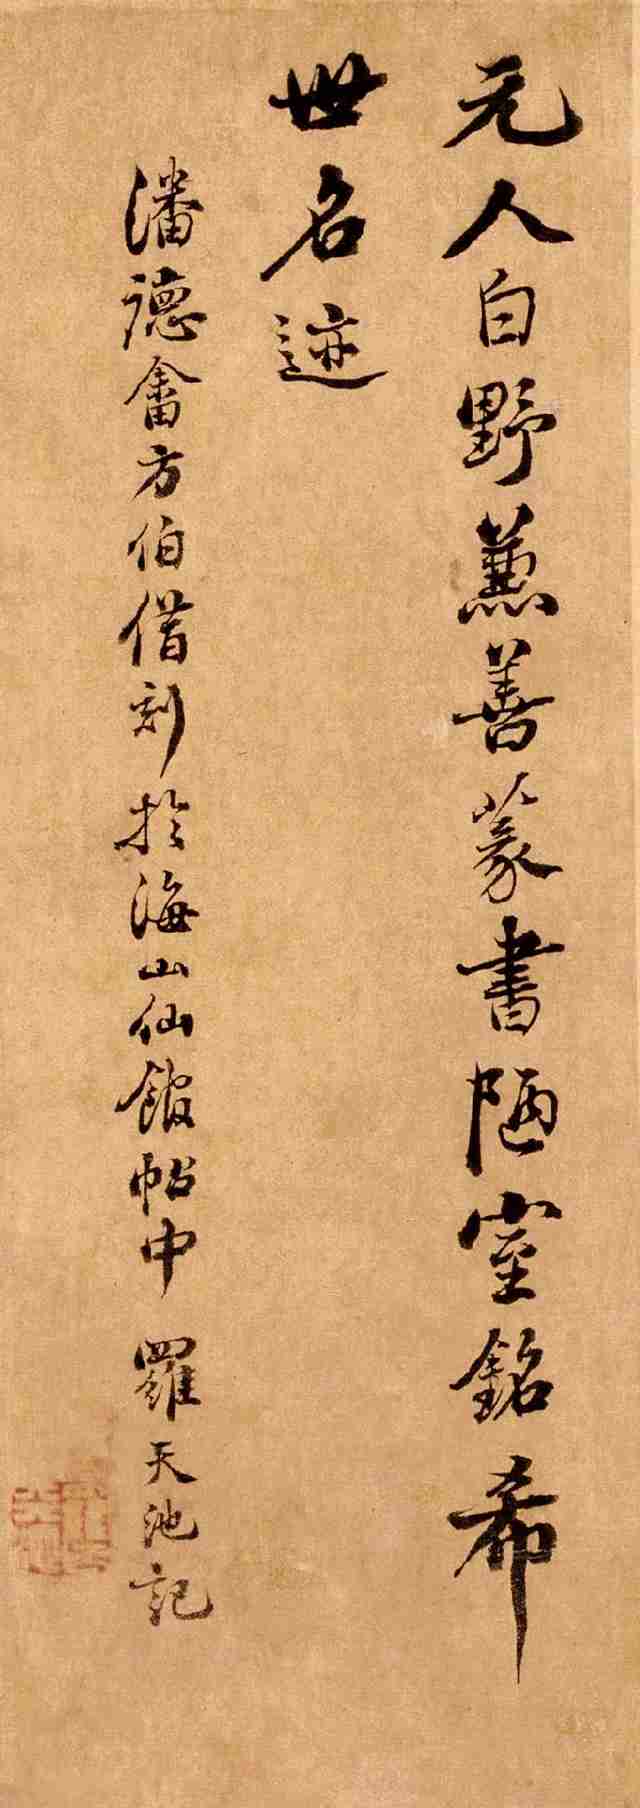 元人白野兼善篆書陋室銘希
世名迹
潘德畬方伯借刻於海山仙館帖中 羅天池記